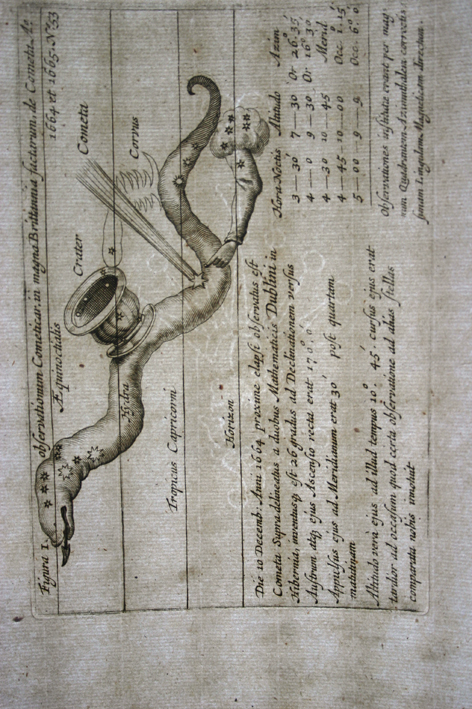 Figura I. observationum Cometicar: in magna Brittannia factarum, de Cometa, Ae
1664 et 1665. Nº 53
Æquinoctialis
Crater
Cometa
Corvus
Hidra
Tropicus Capricorni
Horizon
Die 10 Decemb: Anni 1664 proxime elapsi est
Cometa Supra delineatus a duobus Mathematicis Dublini in
Hibernia, inventusq, est 26 gradus ad Declinationem versus
Austrum atq, ejus Ascensio recta erat 170. 0
Appulsus ejus ad Meridianum erat 30' post quartam
matutinam
Altitudo verò ejus ad illud tempus 10º. 45'. cursus ejus erat
tardior ad occasum quod certa observatione ad alias stellas
comparata nobis
Hora Noctis Altitudo Azim
3 — 30 7 — 30 Or 26. 35'
4 — 0 9 — 30 Or 16. 30
4 — 30 10 45 Merid
4 — 45 10 00 Occ 1. 15
5 — 00 9 — 9 Occ 6. 0
Observationes institutae erant per mag
num Quadrantem Azimuthalem correctis
simam Lingulam Magneticam directum